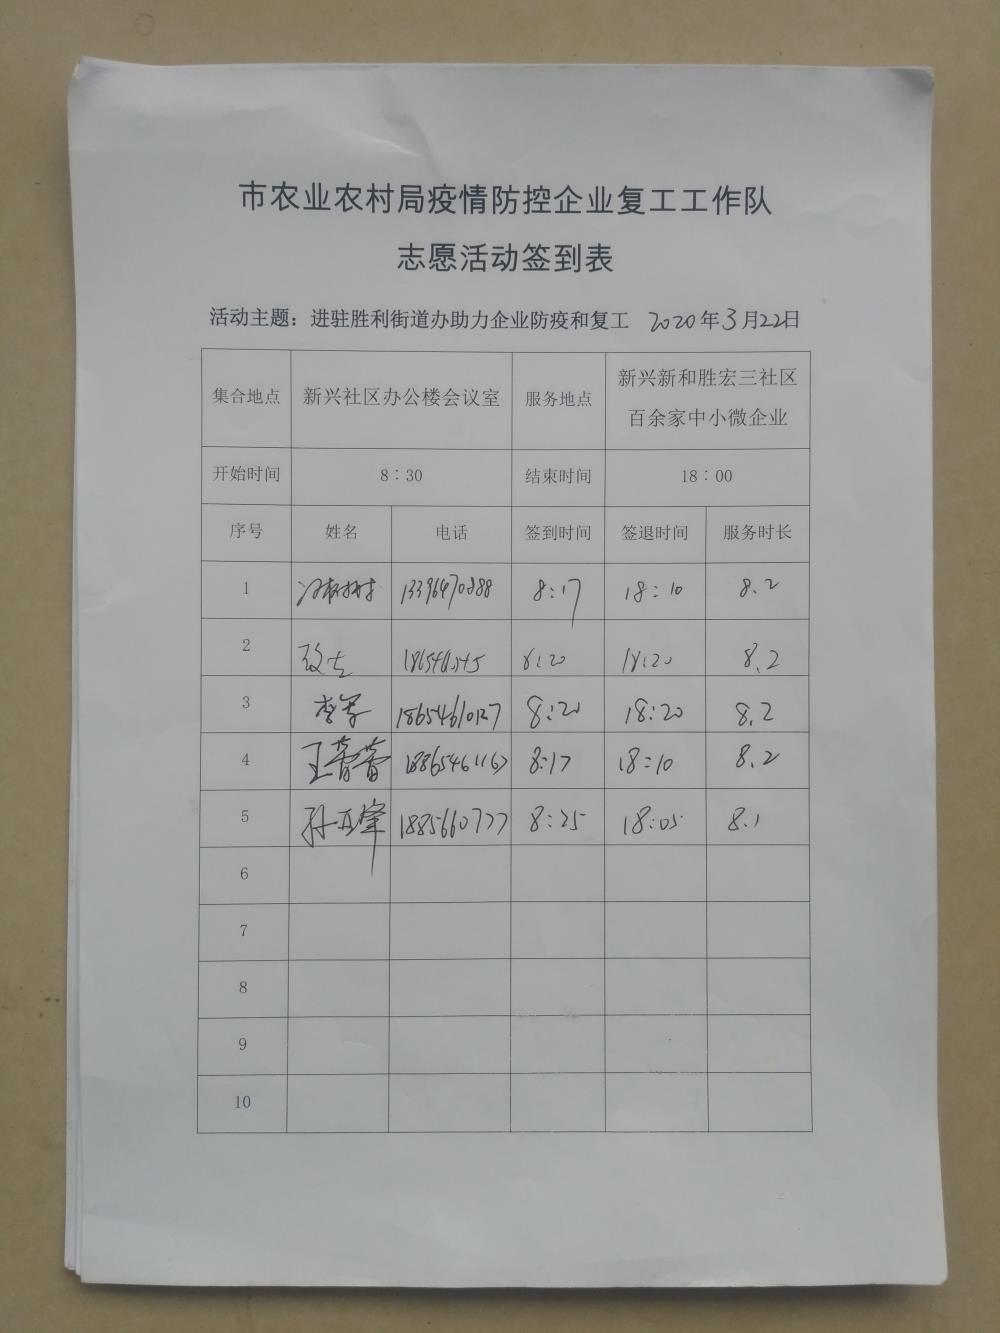 市农业农村局疫情防控企业复工工作队
志愿活动签到表
活动主题：进驻胜利街道办助力企业防疫和复工 2020年3月22日
集合地点 新兴社区办公楼会议室 服务地点 新兴新和胜宏三社区
百余家中小微企业
开始时间 8：30 结束时间 18：00
序号 姓名 电话 签到时间 签退时间 服务时长
1 8:17 18:10 8.2
2 8:20 18:20 8.2
3 李军 8:20 18:20 8.2
4 王蕾蕾 8:17 18:10 8.2
5 8:25 18:05 8.1
6
7
8
9
10